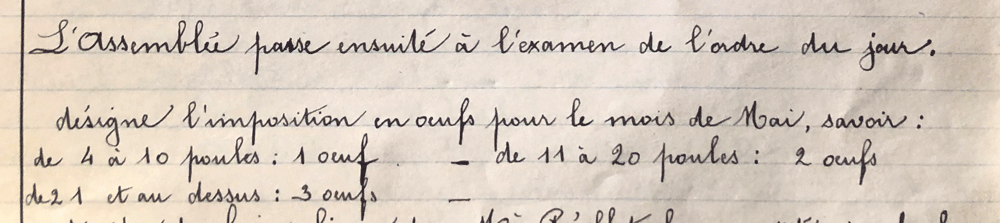 L'Assemblée passe ensuite à l'examen de l'ordre du jour.
désigne l'imposition en œufs pour le mois de Mai, savoir :
de 4 à 10 poules : 1 œuf. — de 11 à 20 poules : 2 œufs
de 21 et au dessus : 3 œufs —